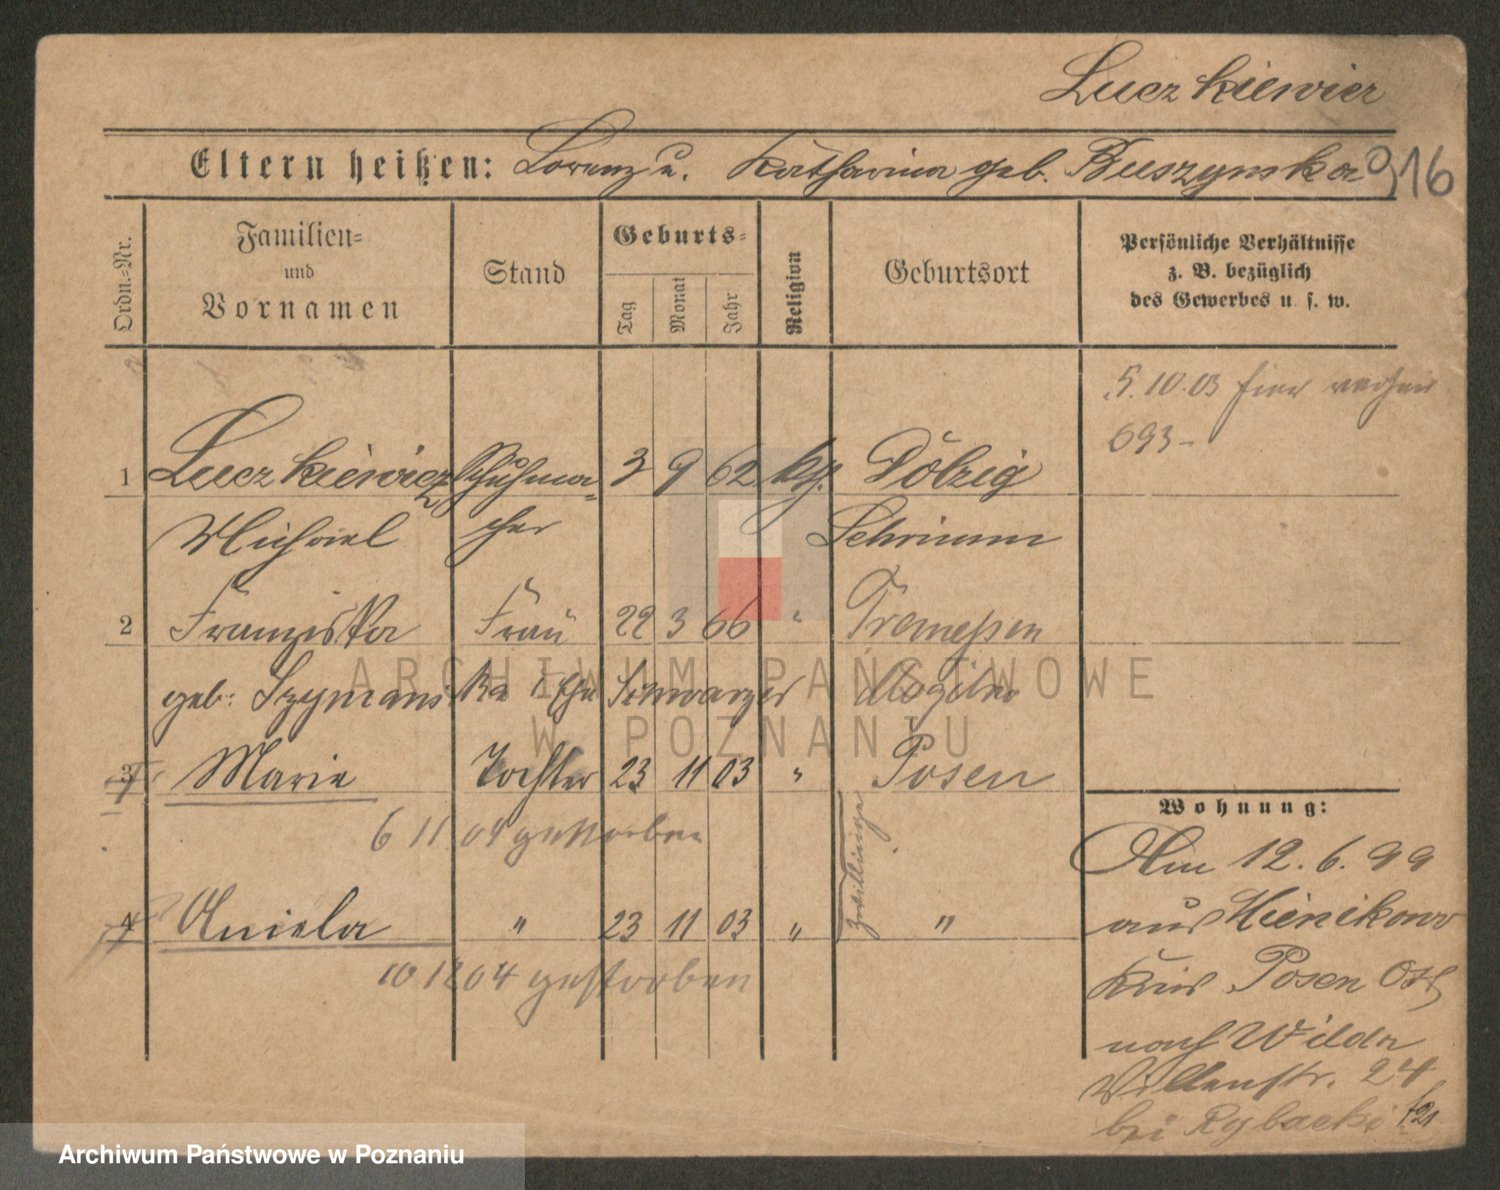 Luczkiewicz
Eltern heißen: Lorenz u. Katharina geb. Buszynska
916
Ordn.-Nr.
Familien- und Vornamen
Stand
Geburts-
Tag
Monat
Jahr
Religion
Geburtsort
Persönliche Verhältnisse
z. B. bezüglich
des Gewerbes u. s. w.
5.10.03 hier
693-
1 Luczkiewicz Schuhma- 3 9 62 kth. Dolzig
Michael cher Schrimm
2 Franziska Frau 22 3 66 " Tremeßen
geb: Szymanska i Ehe Schwarzer Mogilno
3 Marie Tochter 23 11 03 " Posen
6 11 04 gestorben
Zwillinge
4 Aniela " 23 11 03 " "
10 12 04 gestorben
Wohnung:
Am 12. 6. 99
aus
Kreis Posen Ost
nach Wilda
24
bei Rybacki
ARCHIWUM PAŃSTWOWE
W POZNANIU
Archiwum Państwowe w Poznaniu